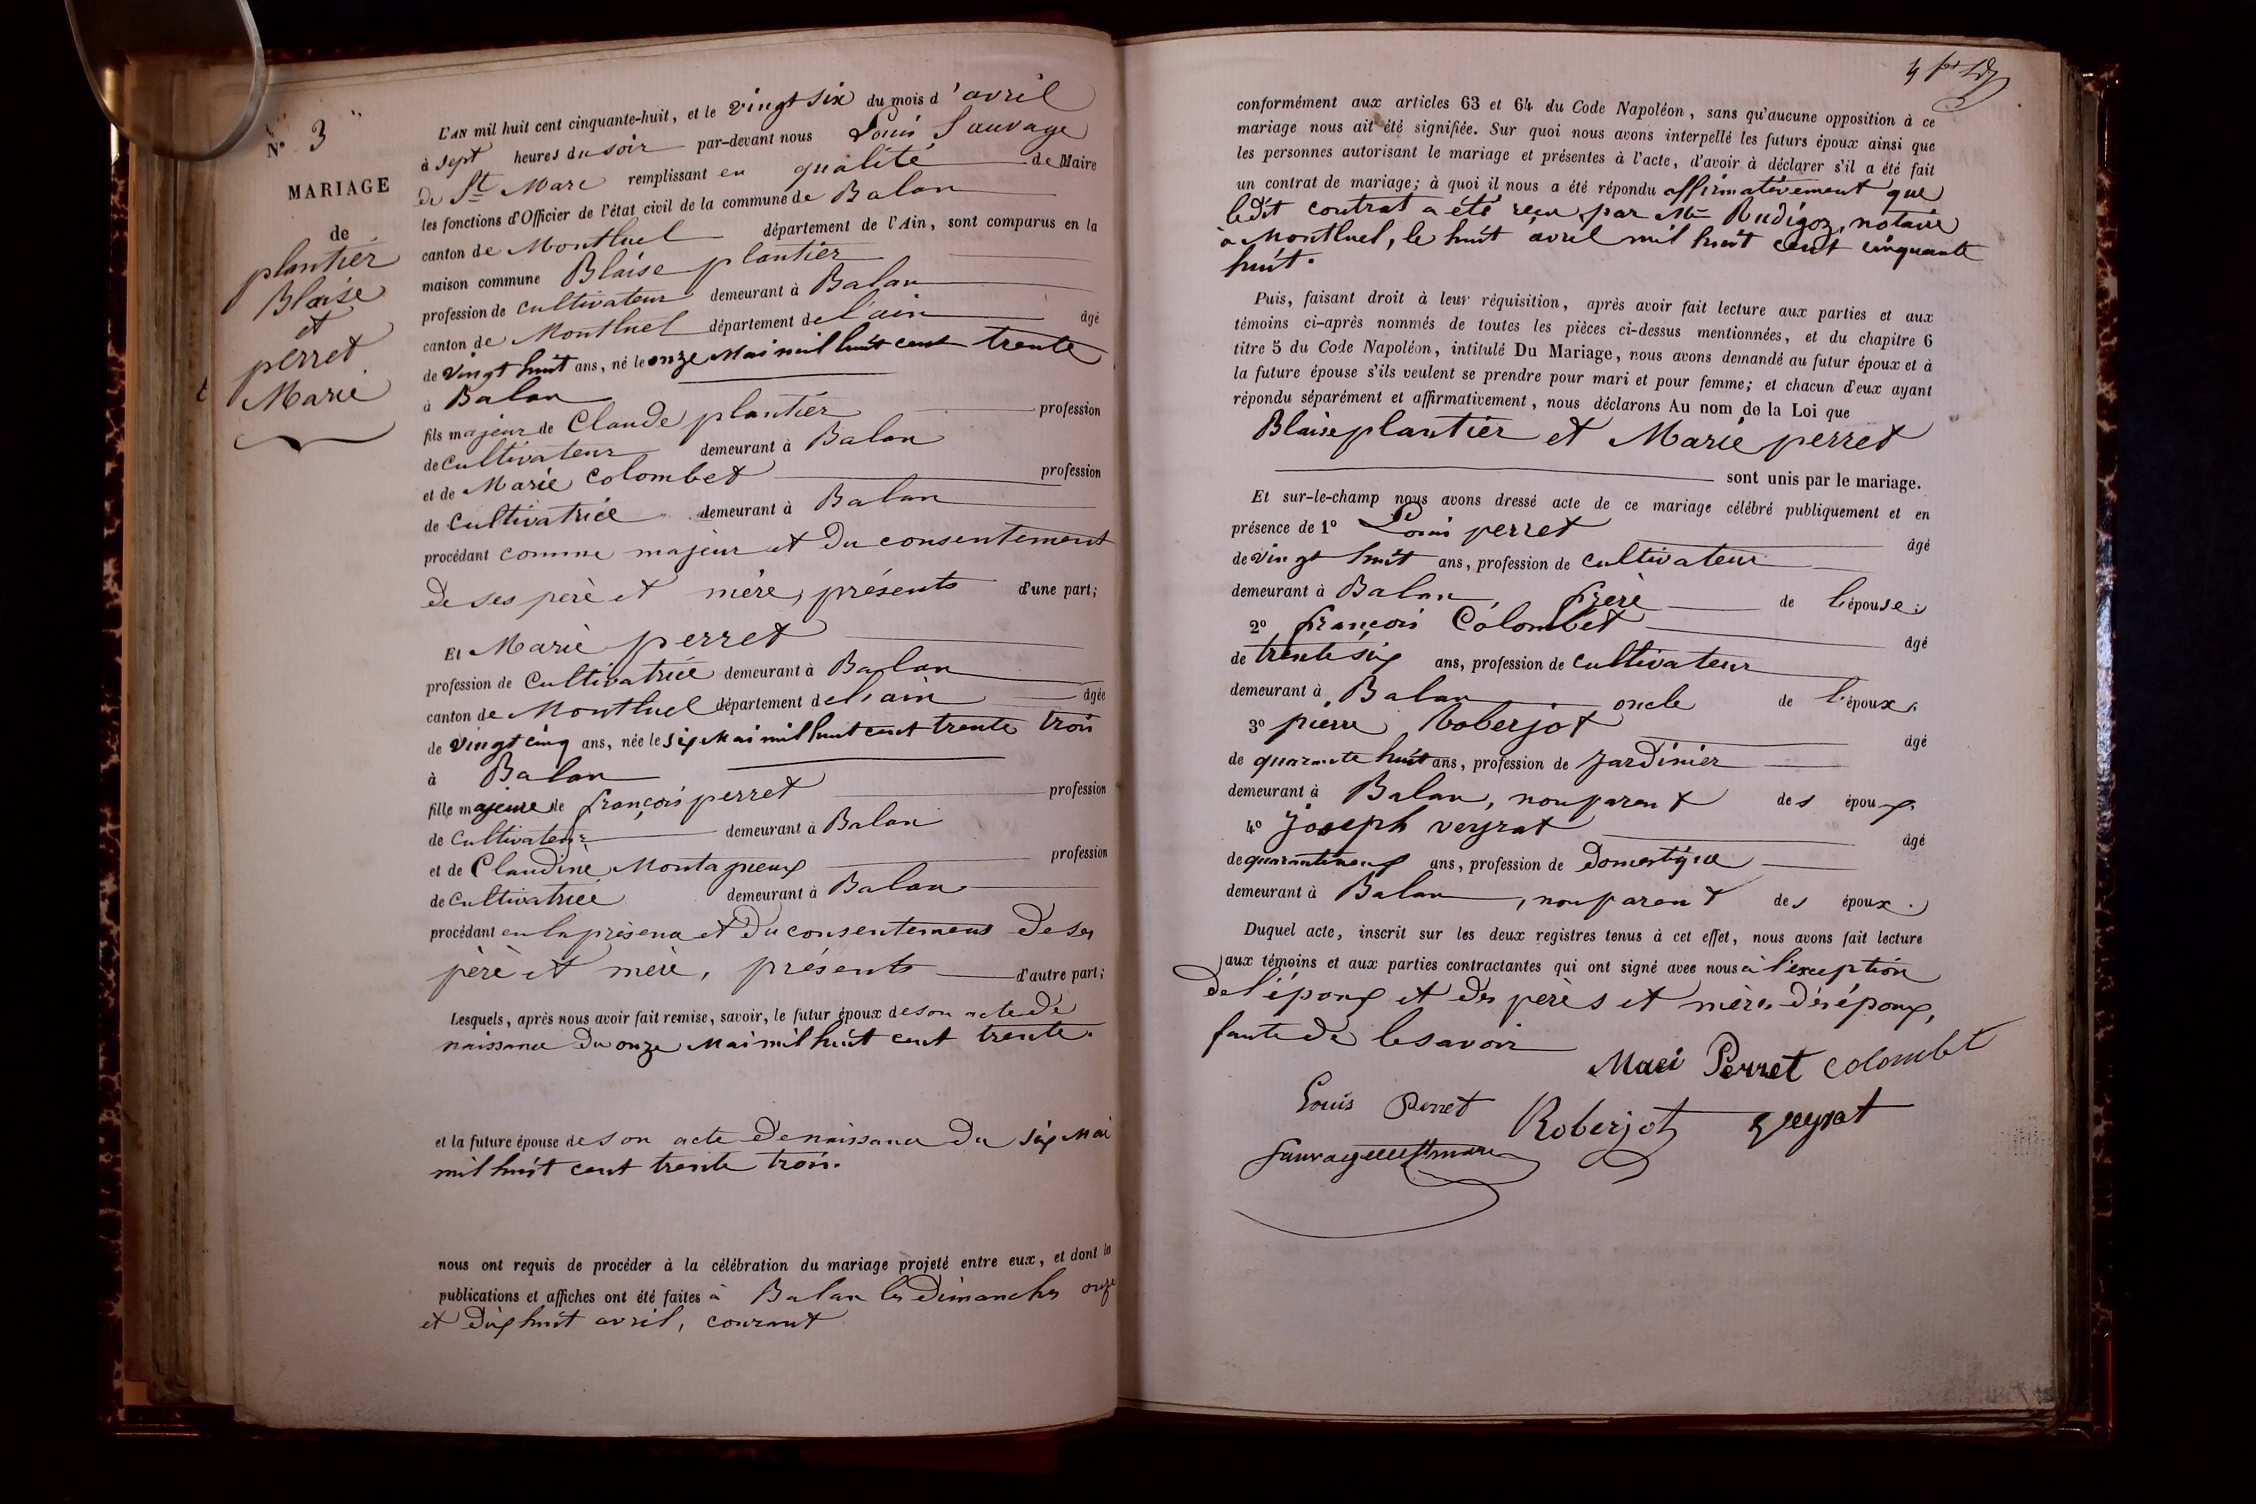 N° 3
MARIAGE
de
plantier
Blaise
et
perret
Marie
L'AN mil huit cent cinquante-huit, et le vingt six du mois d'avril
à sept heures du soir par-devant nous Louis Sauvage
de St Marc remplissant en qualité de Maire
les fonctions d'Officier de l'état civil de la commune de Balan
canton de Montluel département de l'Ain, sont comparus en la
maison commune Blaise plantier
profession de cultivateur demeurant à Balan
canton de Montluel département de l'ain âgé
de vingt huit ans, né le onze Mai mil huit cent trente
à Balan
fils majeur de Claude plantier profession
de cultivateur demeurant à Balan
et de Marie Colombet profession
de cultivatrice demeurant à Balan
procédant comme majeur et du consentement
de ses père et mère, présents d'une part;
Et Marie perret
profession de Cultivatrice demeurant à Balan
canton de Montluel département de l'ain âgée
de vingt cinq ans, née le six Mai mil huit cent trente trois
à Balan
fille majeure de françois perret profession
de Cultivateur demeurant à Balan
et de Claudine Montagneux profession
de Cultivatrice demeurant à Balan
procédant en la présence et du consentement de ses
père et mère, présents d'autre part;
Lesquels, après nous avoir fait remise, savoir, le futur époux de son acte de
naissance du onze Mai mil huit cent trente.
et la future épouse de son acte de naissance du six Mai
mil huit cent trente trois.
nous ont requis de procéder à la célébration du mariage projeté entre eux, et dont les
publications et affiches ont été faites à Balan les Dimanches onze
et dix huit avril, courant
conformément aux articles 63 et 64 du Code Napoléon, sans qu'aucune opposition à ce
mariage nous ait été signifiée. Sur quoi nous avons interpellé les futurs époux ainsi que
les personnes autorisant le mariage et présentes à l'acte, d'avoir à déclarer s'il a été fait
un contrat de mariage; à quoi il nous a été répondu affirmativement que
ledit contrat a été reçu par Me Rudigoz, notaire
à Montluel, le huit avril mil huit cent cinquante
huit.
Puis, faisant droit à leur réquisition, après avoir fait lecture aux parties et aux
témoins ci-après nommés de toutes les pièces ci-dessus mentionnées, et du chapitre 6
titre 5 du Code Napoléon, intitulé Du Mariage, nous avons demandé au futur époux et à
la future épouse s'ils veulent se prendre pour mari et pour femme; et chacun d'eux ayant
répondu séparément et affirmativement, nous déclarons Au nom de la Loi que
Blaise plantier et Marie perret
sont unis par le mariage.
Et sur-le-champ nous avons dressé acte de ce mariage célébré publiquement et en
présence de 1° Louis perret âgé
de vingt huit ans, profession de cultivateur
demeurant à Balan, frère de l'épouse;
2° françois Colombet âgé
de trente six ans, profession de cultivateur
demeurant à Balan oncle de l'époux;
3° pierre Roberjot âgé
de quarante huit ans, profession de jardinier
demeurant à Balan, non parent des époux,
4° Joseph veyrat âgé
de quarante neuf ans, profession de Domestique
demeurant à Balan, non parent des époux.
Duquel acte, inscrit sur les deux registres tenus à cet effet, nous avons fait lecture
aux témoins et aux parties contractantes qui ont signé avec nous à l'exception
de l'époux et des pères et mères des époux,
faute de le savoir
Marie Perret Colombet
Louis Perret Roberjot Veyrat